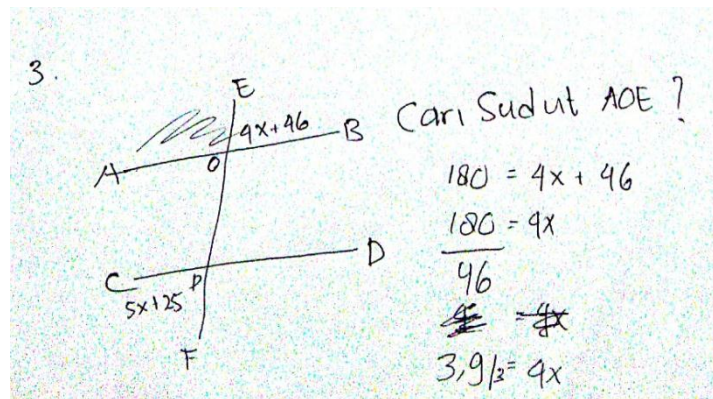 3.
E
4x+46
B
A
O
C
P
D
5x+25
F
Cari Sudut AOE ?
180 = 4x + 46
180 = 4x
46
3,913 = 4x